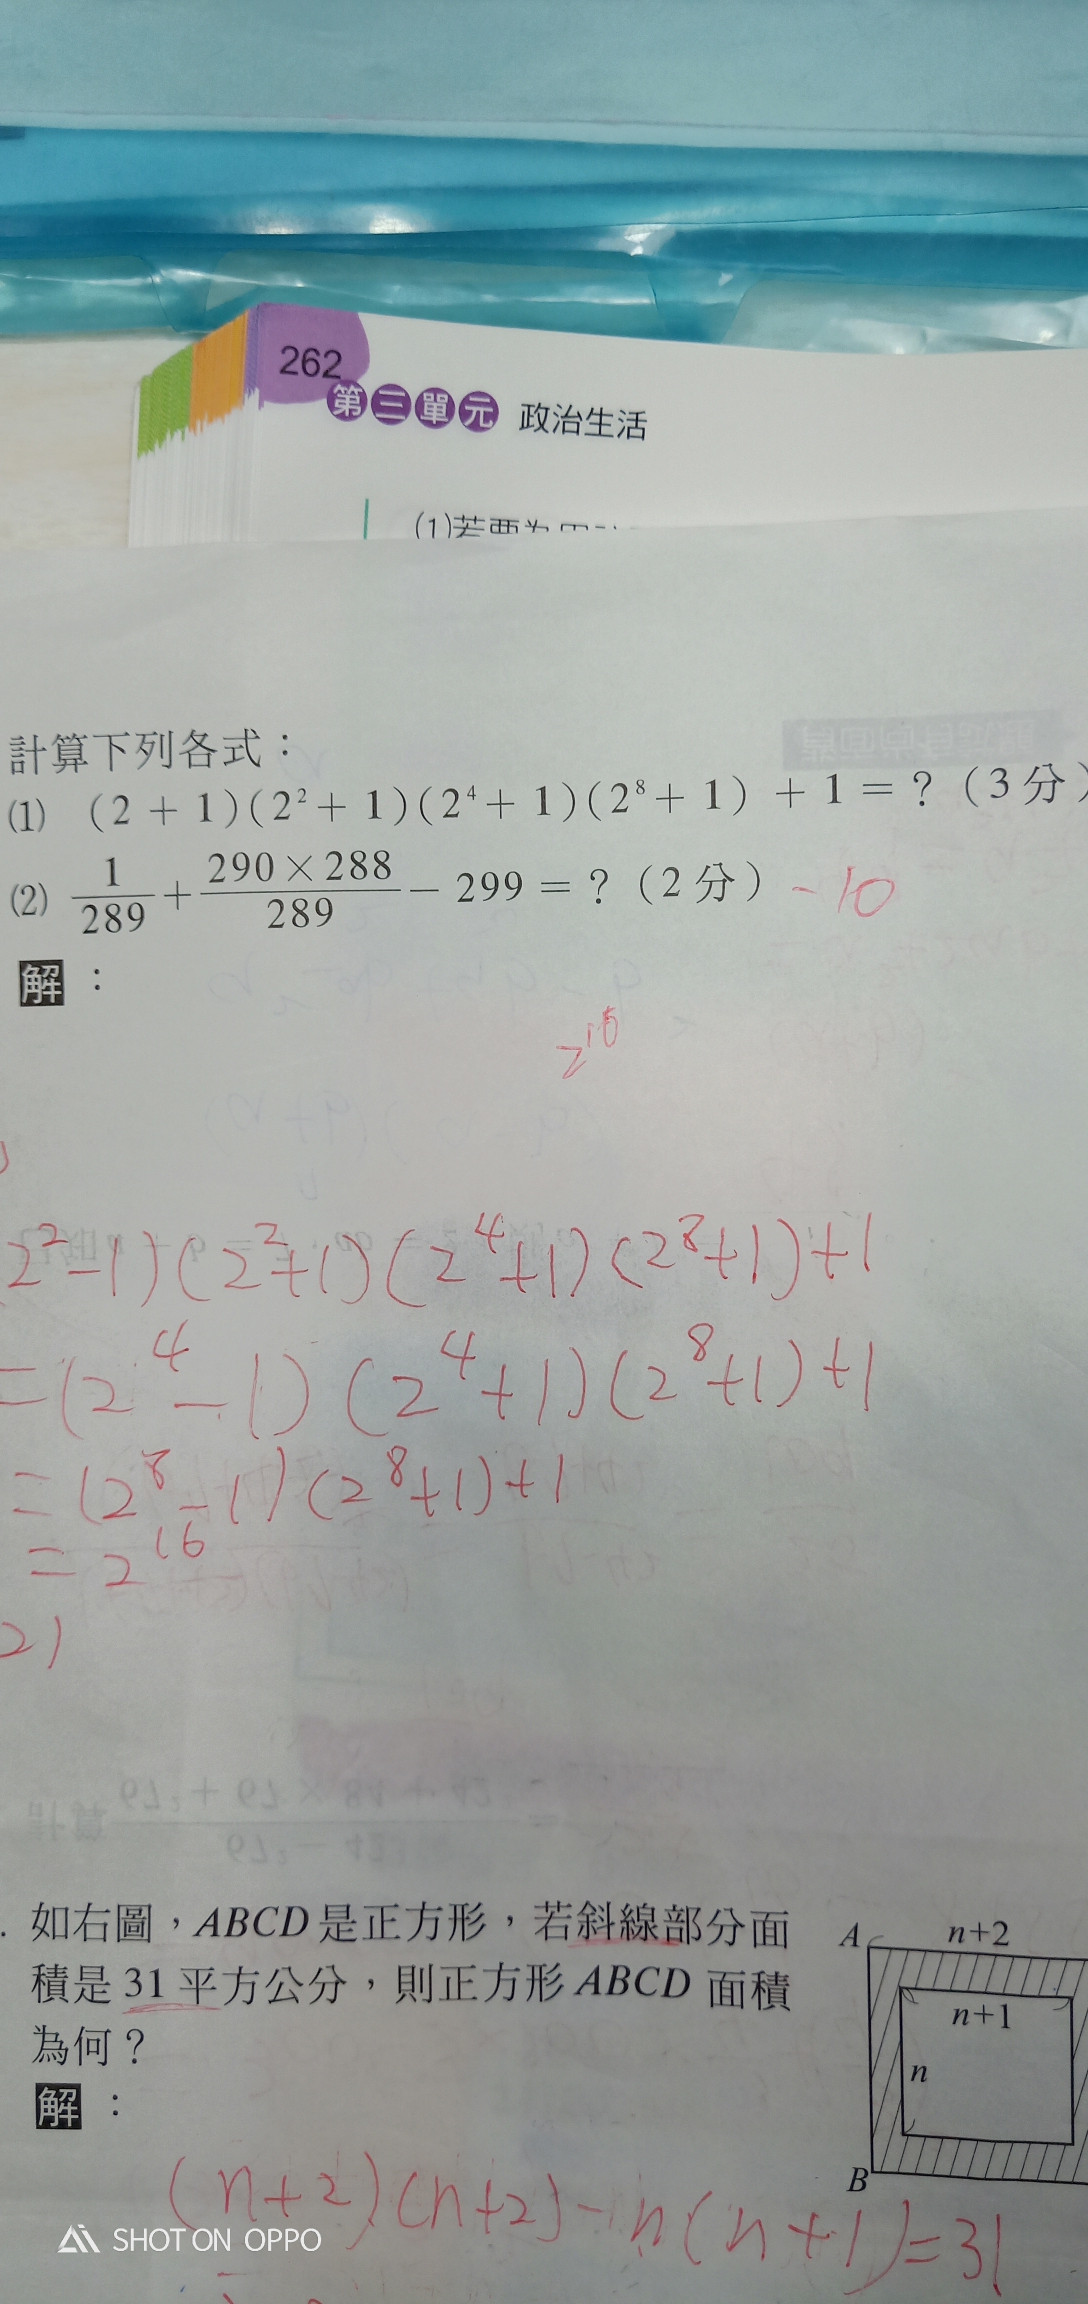 262
第三單元 政治生活
(1)若要為
計算下列各式：
(1) (2+1)(2²+1)(2⁴+1)(2⁸+1)+1=？(3分)
(2) 1/289 + 290×288/289 － 299 = ？(2分) -10
解：
2¹⁶
2²-1)(2²+1)(2⁴+1)(2⁸+1)+1
=(2⁴-1)(2⁴+1)(2⁸+1)+1
=(2⁸-1)(2⁸+1)+1
=2¹⁶
2)
. 如右圖，ABCD是正方形，若斜線部分面
積是31平方公分，則正方形ABCD面積
為何？
A n+2
n+1
n
B
解：
(n+2)(n+2)-n(n+1)=31
SHOT ON OPPO